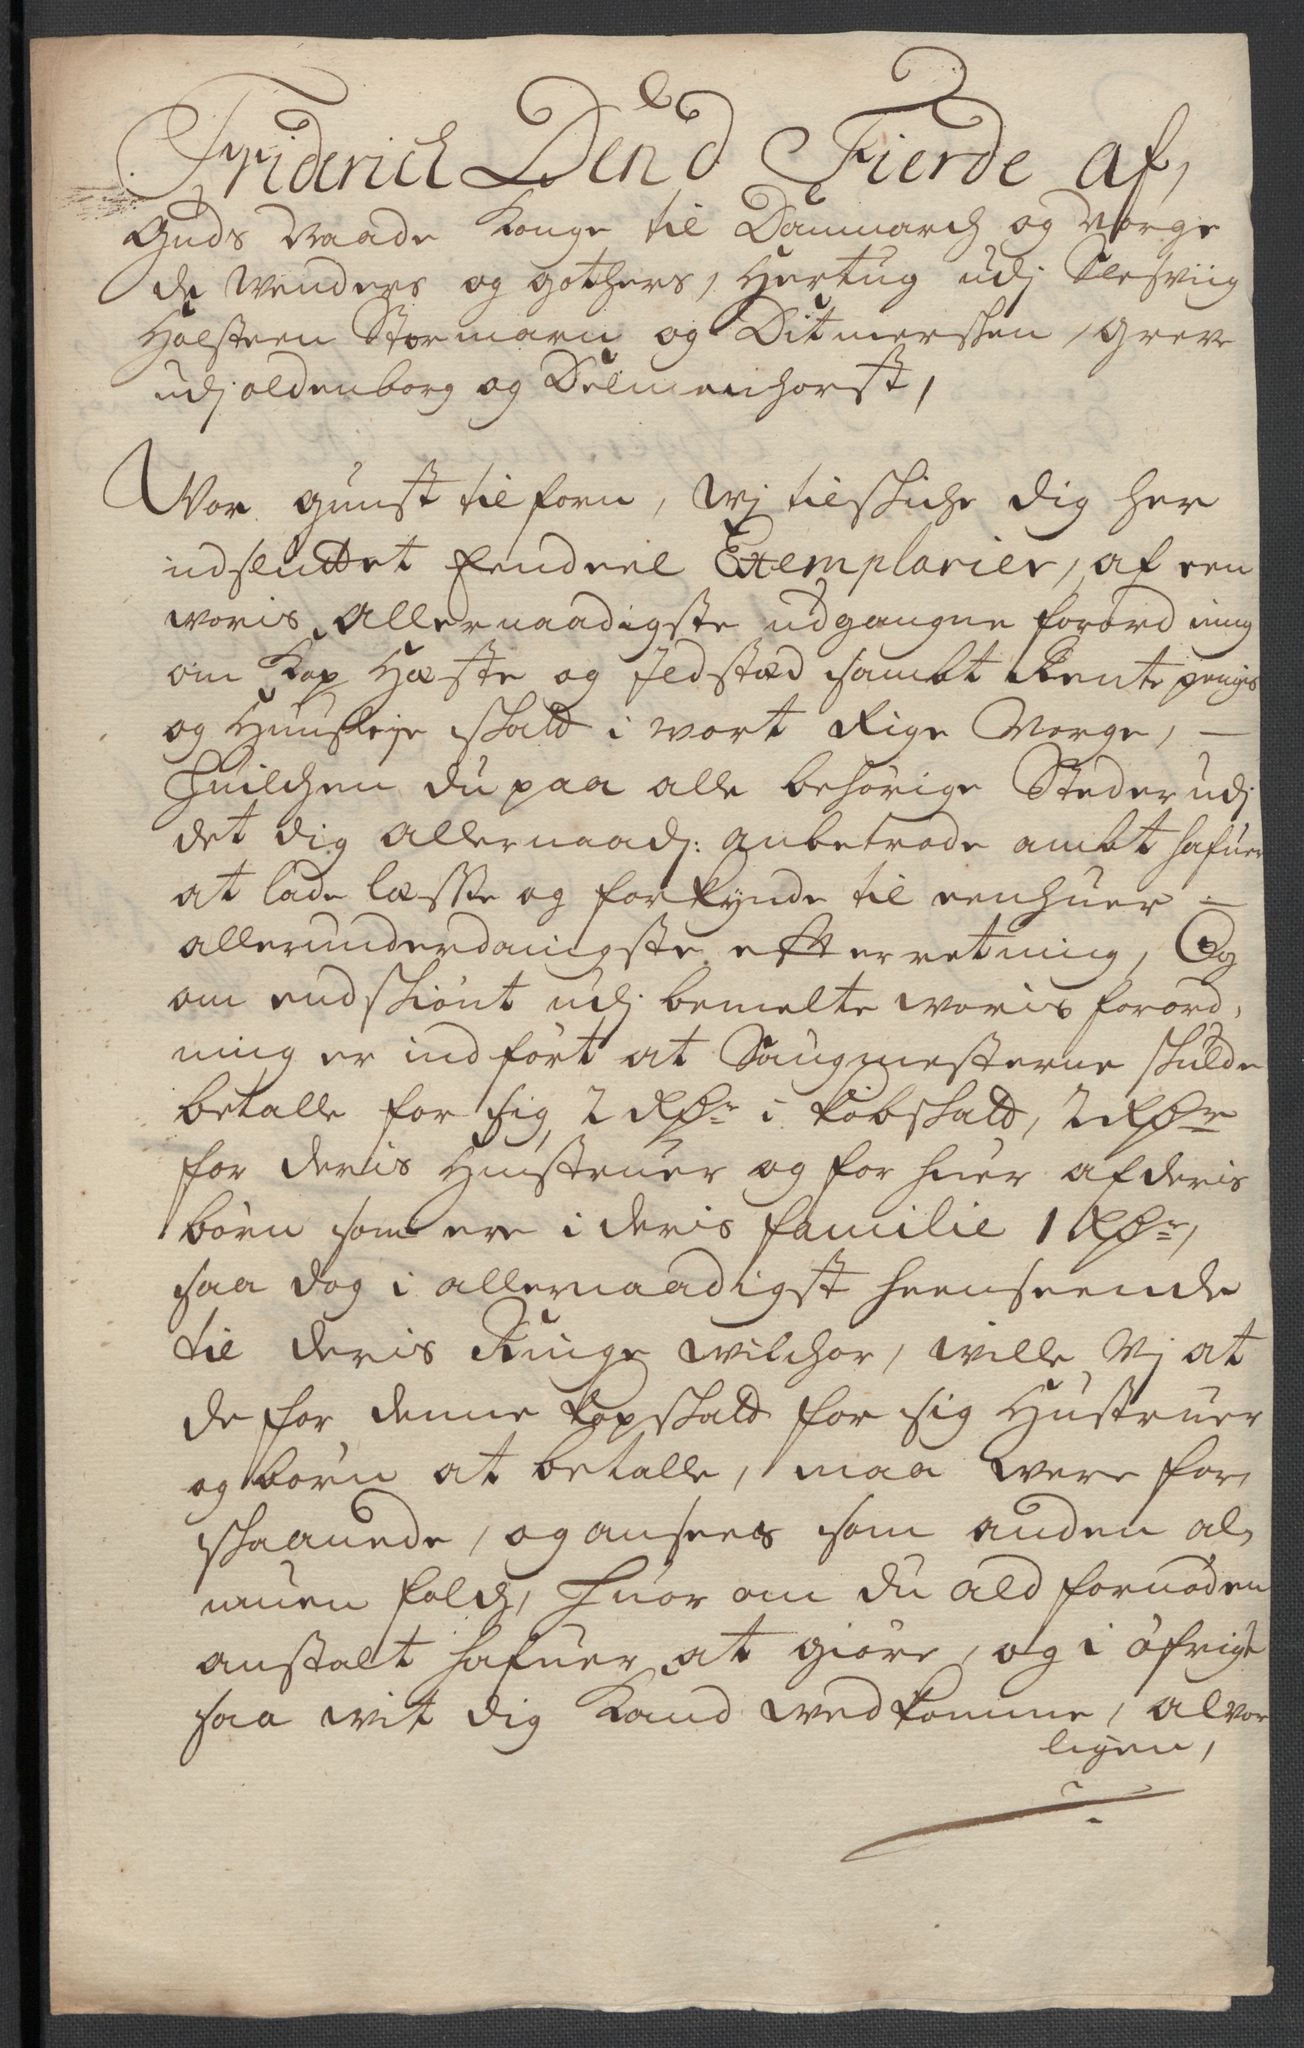 Friderich Den d Fierde af,
Guds Naade Konge til Danmarch og Norge
de Wenders og Gothers, Hertug udj Slesviig
Holsteen Stormarn og Ditmerschen, Greve
udj oldenborg og Delmenhorst,
Wor gunst tilforn, Wj tilschiche dig her
indsluttet Eendeel Exemplarier, af een
woris Allernaadigste udgangne forordning
om Kop Hæste og Jldstæd sambt Rente penges
og Huusleje skatt i wort Rige Norge, —
Huilchen du paa alle behörige Steder udj
det dig allernaadj: anbetrode ambt hafuer
at lade læsse og forkynde til eenhuer —
allerunderdanigste efterretning, Og
om endskiönt udj bemelte woris forord,
ning er indfört at Saugmesterne skulde
betalle for sig 2 Rdr i kobskatt, 2 Rdr
for deris Hustruer og for huer af deris
börn som ere i deris familie 1 Rdr,
saa dog i allernaadigst heenseende
til deris Ringe wilchor, wille Wj at
de for denne kopskatt for sig Hustruer
og börn at betalle, maa were for,
skaanede, og ansees som anden al,
muen folch, huor om du ald fornöden
anstalt hafuer at giöre, og i öfrigt
saa wit dig Kand wedkomme, alvor
ligen,